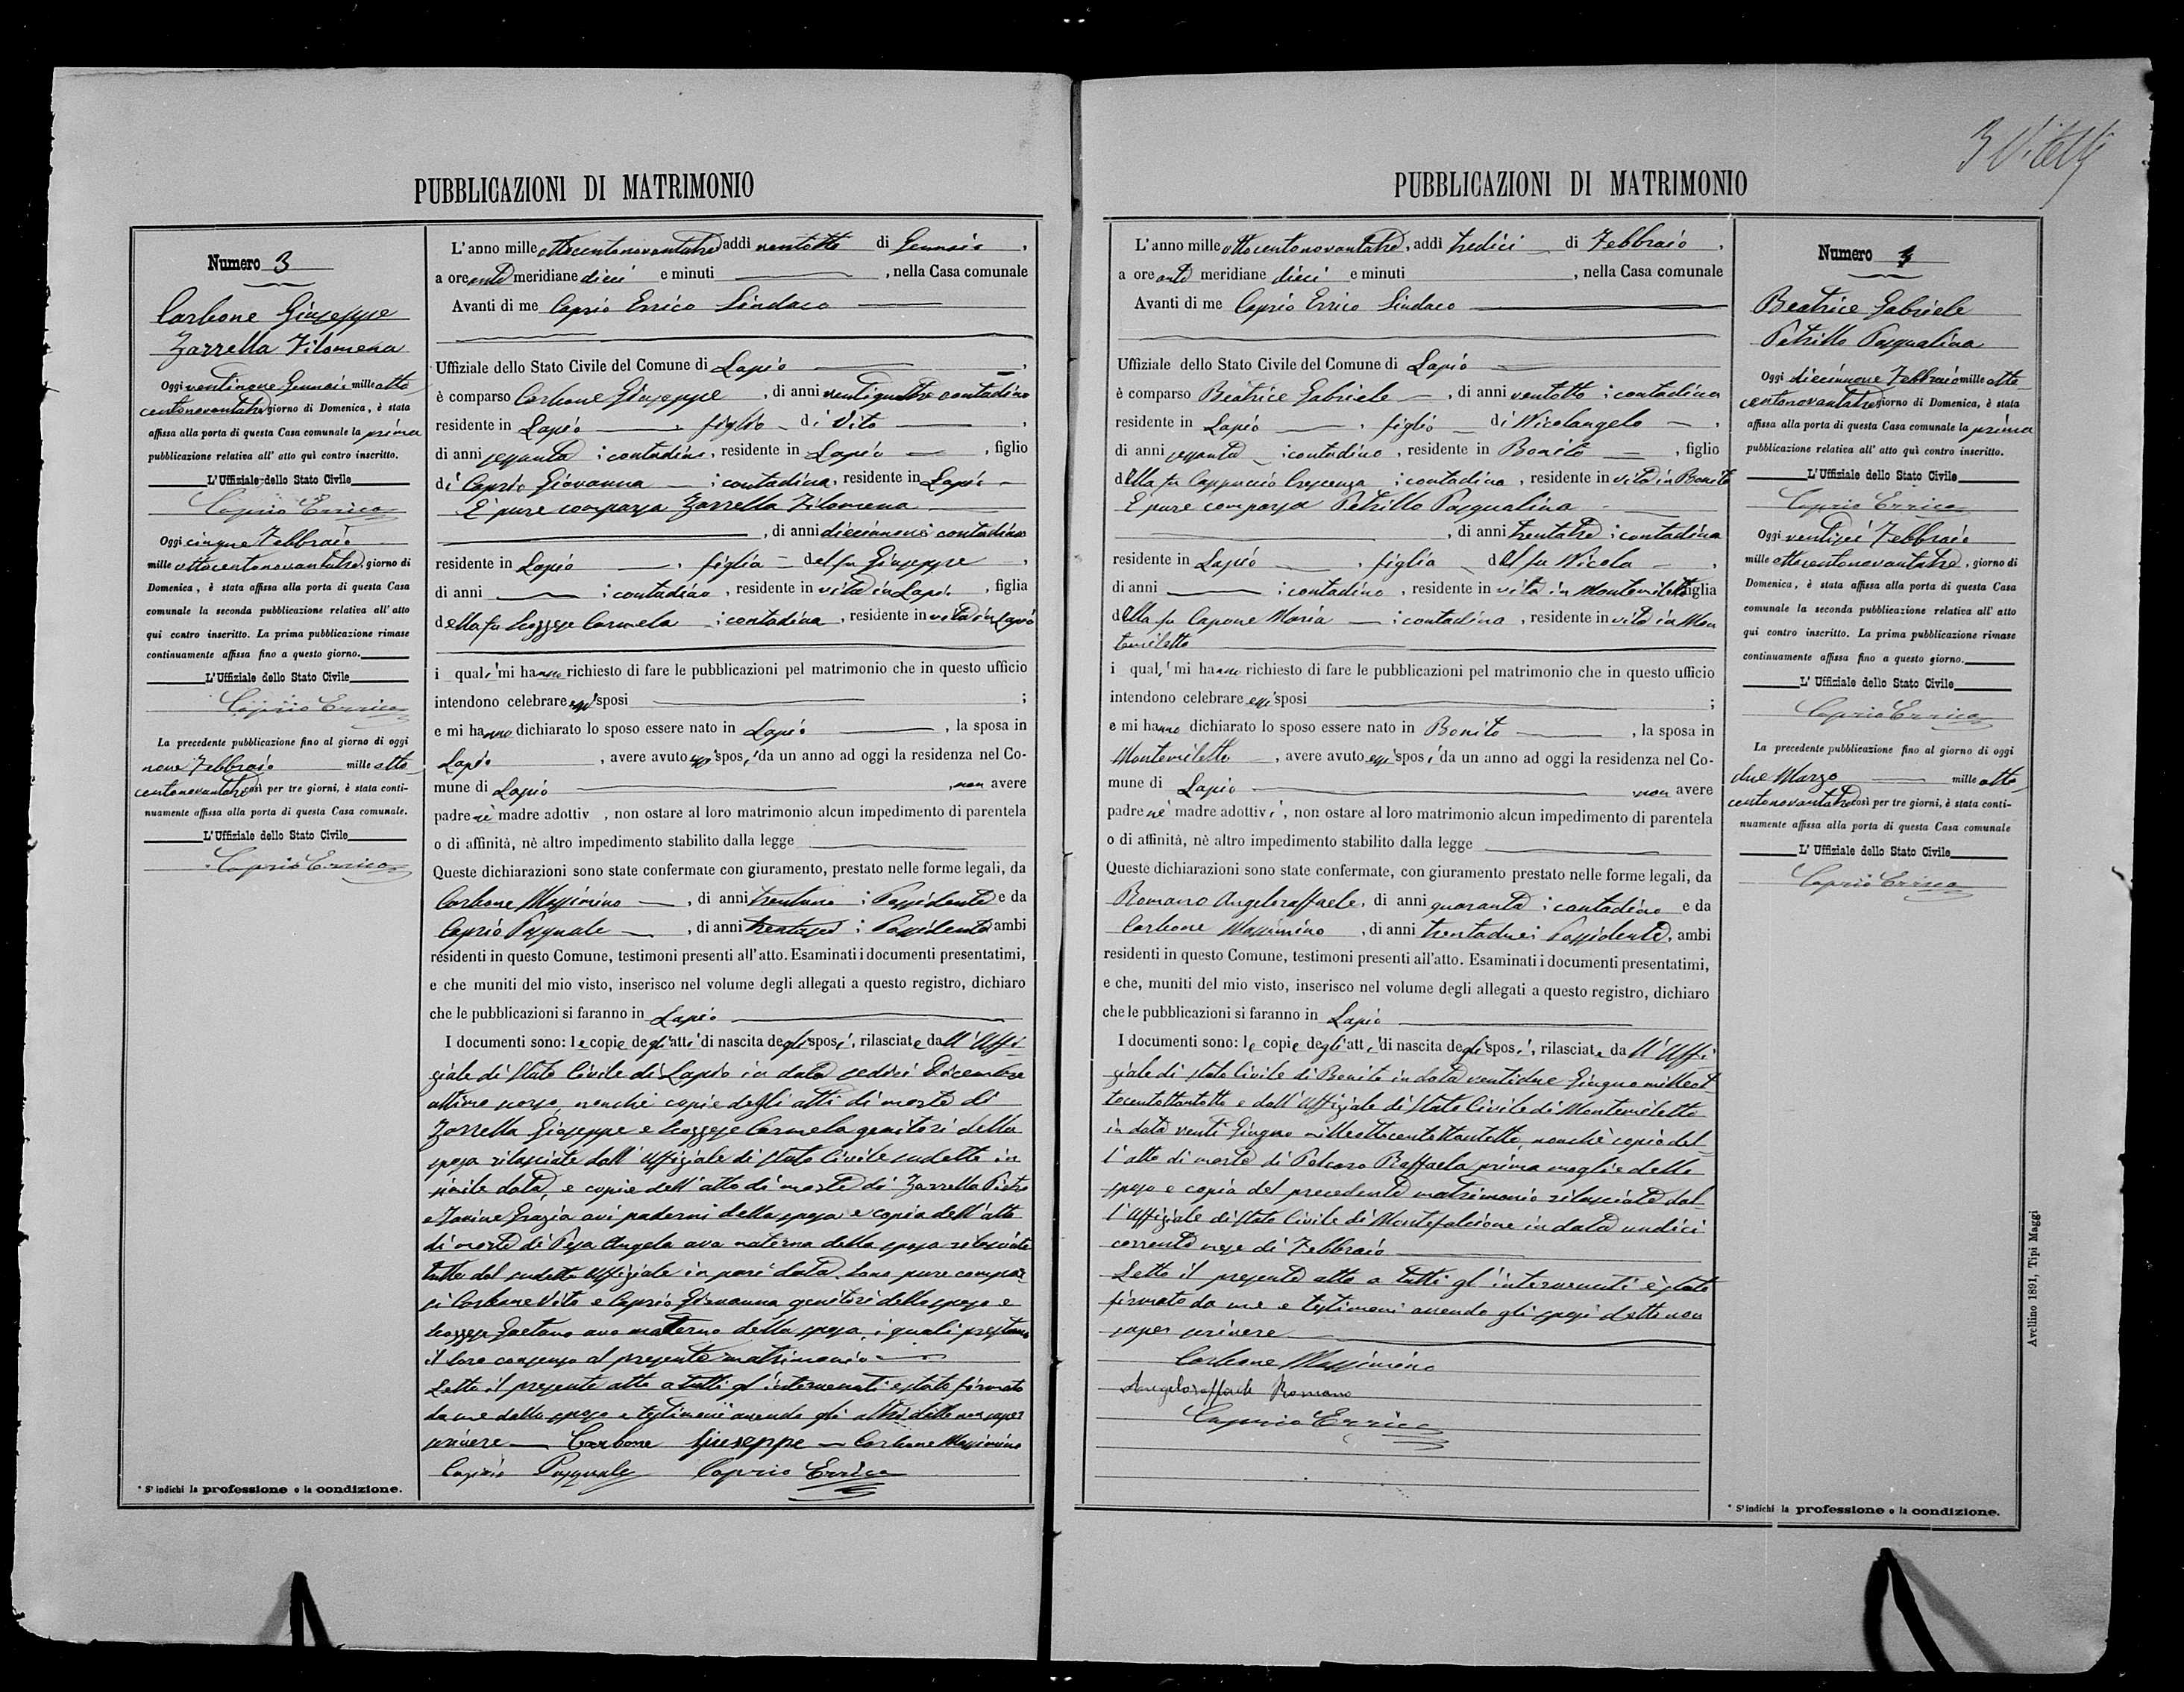 PUBBLICAZIONI DI MATRIMONIO
Numero 3
Carbone Giuseppe
Zarrella Filomena
Oggi ventinove Gennaio mille otto
centonovantatre giorno di Domenica, è stata
affissa alla porta di questa Casa comunale la prima
pubblicazione relativa all' atto quì contro inscritto.
L'Uffiziale dello Stato Civile
Caprio Errico
Oggi cinque Febbraio
mille ottocentonovantatre, giorno di
Domenica, è stata affissa alla porta di questa Casa
comunale la seconda pubblicazione relativa all' atto
qui contro inscritto. La prima pubblicazione rimase
continuamente affissa fino a questo giorno.
L'Uffiziale dello Stato Civile
Caprio Errico
La precedente pubblicazione fino al giorno di oggi
nove Febbraio mille otto
centonovantatre così per tre giorni, è stata conti-
nuamente affissa alla porta di questa Casa comunale.
L'Uffiziale dello Stato Civile
Caprio Errico
* S'indichi la professione o la condizione.
L'anno mille ottocentonovantatre addì ventotto di Gennaio,
a ore ante meridiane dieci e minuti , nella Casa comunale
Avanti di me Caprio Errico Sindaco
Uffiziale dello Stato Civile del Comune di Lapio
è comparso Carbone Giuseppe, di anni ventiquattro contadino
residente in Lapio, figlio di Vito,
di anni sessanta contadino, residente in Lapio, figlio
di Caprio Giovanna contadina, residente in Lapio
È pure comparsa Zarrella Filomena
, di anni diecinnove contadina
residente in Lapio, figlia del fu Giuseppe,
di anni contadino, residente in vita in Lapio, figlia
della fu Scozzese Carmela contadina, residente in vita in Lapio
i quali mi hanno richiesto di fare le pubblicazioni pel matrimonio che in questo ufficio
intendono celebrare essi sposi ;
e mi hanno dichiarato lo sposo essere nato in Lapio, la sposa in
Lapio, avere avuto essi sposi da un anno ad oggi la residenza nel Co-
mune di Lapio, non avere
padre nè madre adottiv , non ostare al loro matrimonio alcun impedimento di parentela
o di affinità, nè altro impedimento stabilito dalla legge
Queste dichiarazioni sono state confermate con giuramento, prestato nelle forme legali, da
Carbone Massimino, di anni trentuno Possidente e da
Caprio Pasquale, di anni trentasei Possidente ambi
residenti in questo Comune, testimoni presenti all'atto. Esaminati i documenti presentatimi,
e che muniti del mio visto, inserisco nel volume degli allegati a questo registro, dichiaro
che le pubblicazioni si faranno in Lapio
I documenti sono: le copie degli atti di nascita degli sposi, rilasciate dall'Uffi-
ziale di Stato Civile di Lapio in data sedici Dicembre
ultimo scorso, nonchè copie degli atti di morte di
Zarrella Giuseppe e Scozzese Carmela genitori della
sposa rilasciate dall'Uffiziale di Stato Civile sudetto in
simile data, e copie dell'atto di morte di Zarrella Pietro
e Grazia avi paterni della sposa e copia dell'atto
di morte di Pisa Angela ava materna della sposa rilasciate
tutte dal sudetto Uffiziale in pari data. Sono pure compar
si Carbone Vito e Caprio Giovanna genitori dello sposo e
Scozzese Gaetano avo materno della sposa, i quali prestano
il loro consenso al presente matrimonio
Letto il presente atto a tutti gl'intervenuti è stato firmato
da me dallo sposo e testimoni avendo gli altri detto non saper
scrivere — Carbone Giuseppe — Carbone Massimino
Caprio Pasquale Caprio Errico
PUBBLICAZIONI DI MATRIMONIO
L'anno mille ottocentonovantatre, addì tredici di Febbraio,
a ore ante meridiane dieci e minuti , nella Casa comunale
Avanti di me Caprio Errico Sindaco
Uffiziale dello Stato Civile del Comune di Lapio
è comparso Beatrice Gabriele, di anni ventotto contadino
residente in Lapio, figlio di Nicolangelo,
di anni sessanta contadino, residente in Bonito, figlio
della fu Cappuccio Crescenza contadina, residente in vita in Bonito
È pure comparsa Petrillo Pasqualina
, di anni trentatre contadina
residente in Lapio, figlia del fu Nicola,
di anni contadino, residente in vita in Montemiletto figlia
della fu Capone Maria contadina, residente in vita in Mon
temiletto
i quali mi hanno richiesto di fare le pubblicazioni pel matrimonio che in questo ufficio
intendono celebrare essi sposi ;
e mi hanno dichiarato lo sposo essere nato in Bonito, la sposa in
Montemiletto, avere avuto essi sposi da un anno ad oggi la residenza nel Co-
mune di Lapio non avere
padre nè madre adottivi, non ostare al loro matrimonio alcun impedimento di parentela
o di affinità, nè altro impedimento stabilito dalla legge
Queste dichiarazioni sono state confermate, con giuramento prestato nelle forme legali, da
Romano Angeloraffaele, di anni quaranta contadino e da
Carbone Massimino, di anni trentadue Possidente, ambi
residenti in questo Comune, testimoni presenti all'atto. Esaminati i documenti presentatimi,
e che, muniti del mio visto, inserisco nel volume degli allegati a questo registro, dichiaro
che le pubblicazioni si faranno in Lapio
I documenti sono: le copie degli atti di nascita degli sposi, rilasciate dall'Uffi
ziale di Stato Civile di Bonito in data ventidue Giugno milleot
tocentottantotto e dall'Uffiziale di Stato Civile di Montemiletto
in data venti Giugno milleottocentottantotto, nonchè copia del
l'atto di morte di Polcaro Raffaela prima moglie dello
sposo e copia del precedente matrimonio rilasciate dal
l'Uffiziale di Stato Civile di Montefalcione in data undici
corrente mese di Febbraio
Letto il presente atto a tutti gl'intervenuti è stato
firmato da me e testimoni avendo gli sposi detto non
saper scrivere
Carbone Massimino
Angeloraffaele Romano
Caprio Errico
Numero 4
Beatrice Gabriele
Petrillo Pasqualina
Oggi diecinnove Febbraio mille otto
centonovantatre giorno di Domenica, è stata
affissa alla porta di questa Casa comunale la prima
pubblicazione relativa all' atto quì contro inscritto.
L'Uffiziale dello Stato Civile
Caprio Errico
Oggi ventisei Febbraio
mille ottocentonovantatre, giorno di
Domenica, è stata affissa alla porta di questa Casa
comunale la seconda pubblicazione relativa all' atto
qui contro inscritto. La prima pubblicazione rimase
continuamente affissa fino a questo giorno.
L' Uffiziale dello Stato Civile
Caprio Errico
La precedente pubblicazione fino al giorno di oggi
due Marzo mille otto
centonovantatre così per tre giorni, è stata conti-
nuamente affissa alla porta di questa Casa comunale
L' Uffiziale dello Stato Civile
Caprio Errico
* S'indichi la professione o la condizione.
Avellino 1891, Tipi Maggi